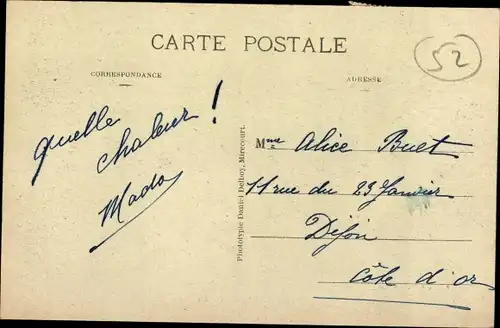 CARTE POSTALE
52
CORRESPONDANCE
ADRESSE
quelle
chaleur !
Mado
Phototypie Daniel Delboy, Mirecourt.
Mme Alice Buet
11 rue du 23 Janvier
Dijon
Côte d'or